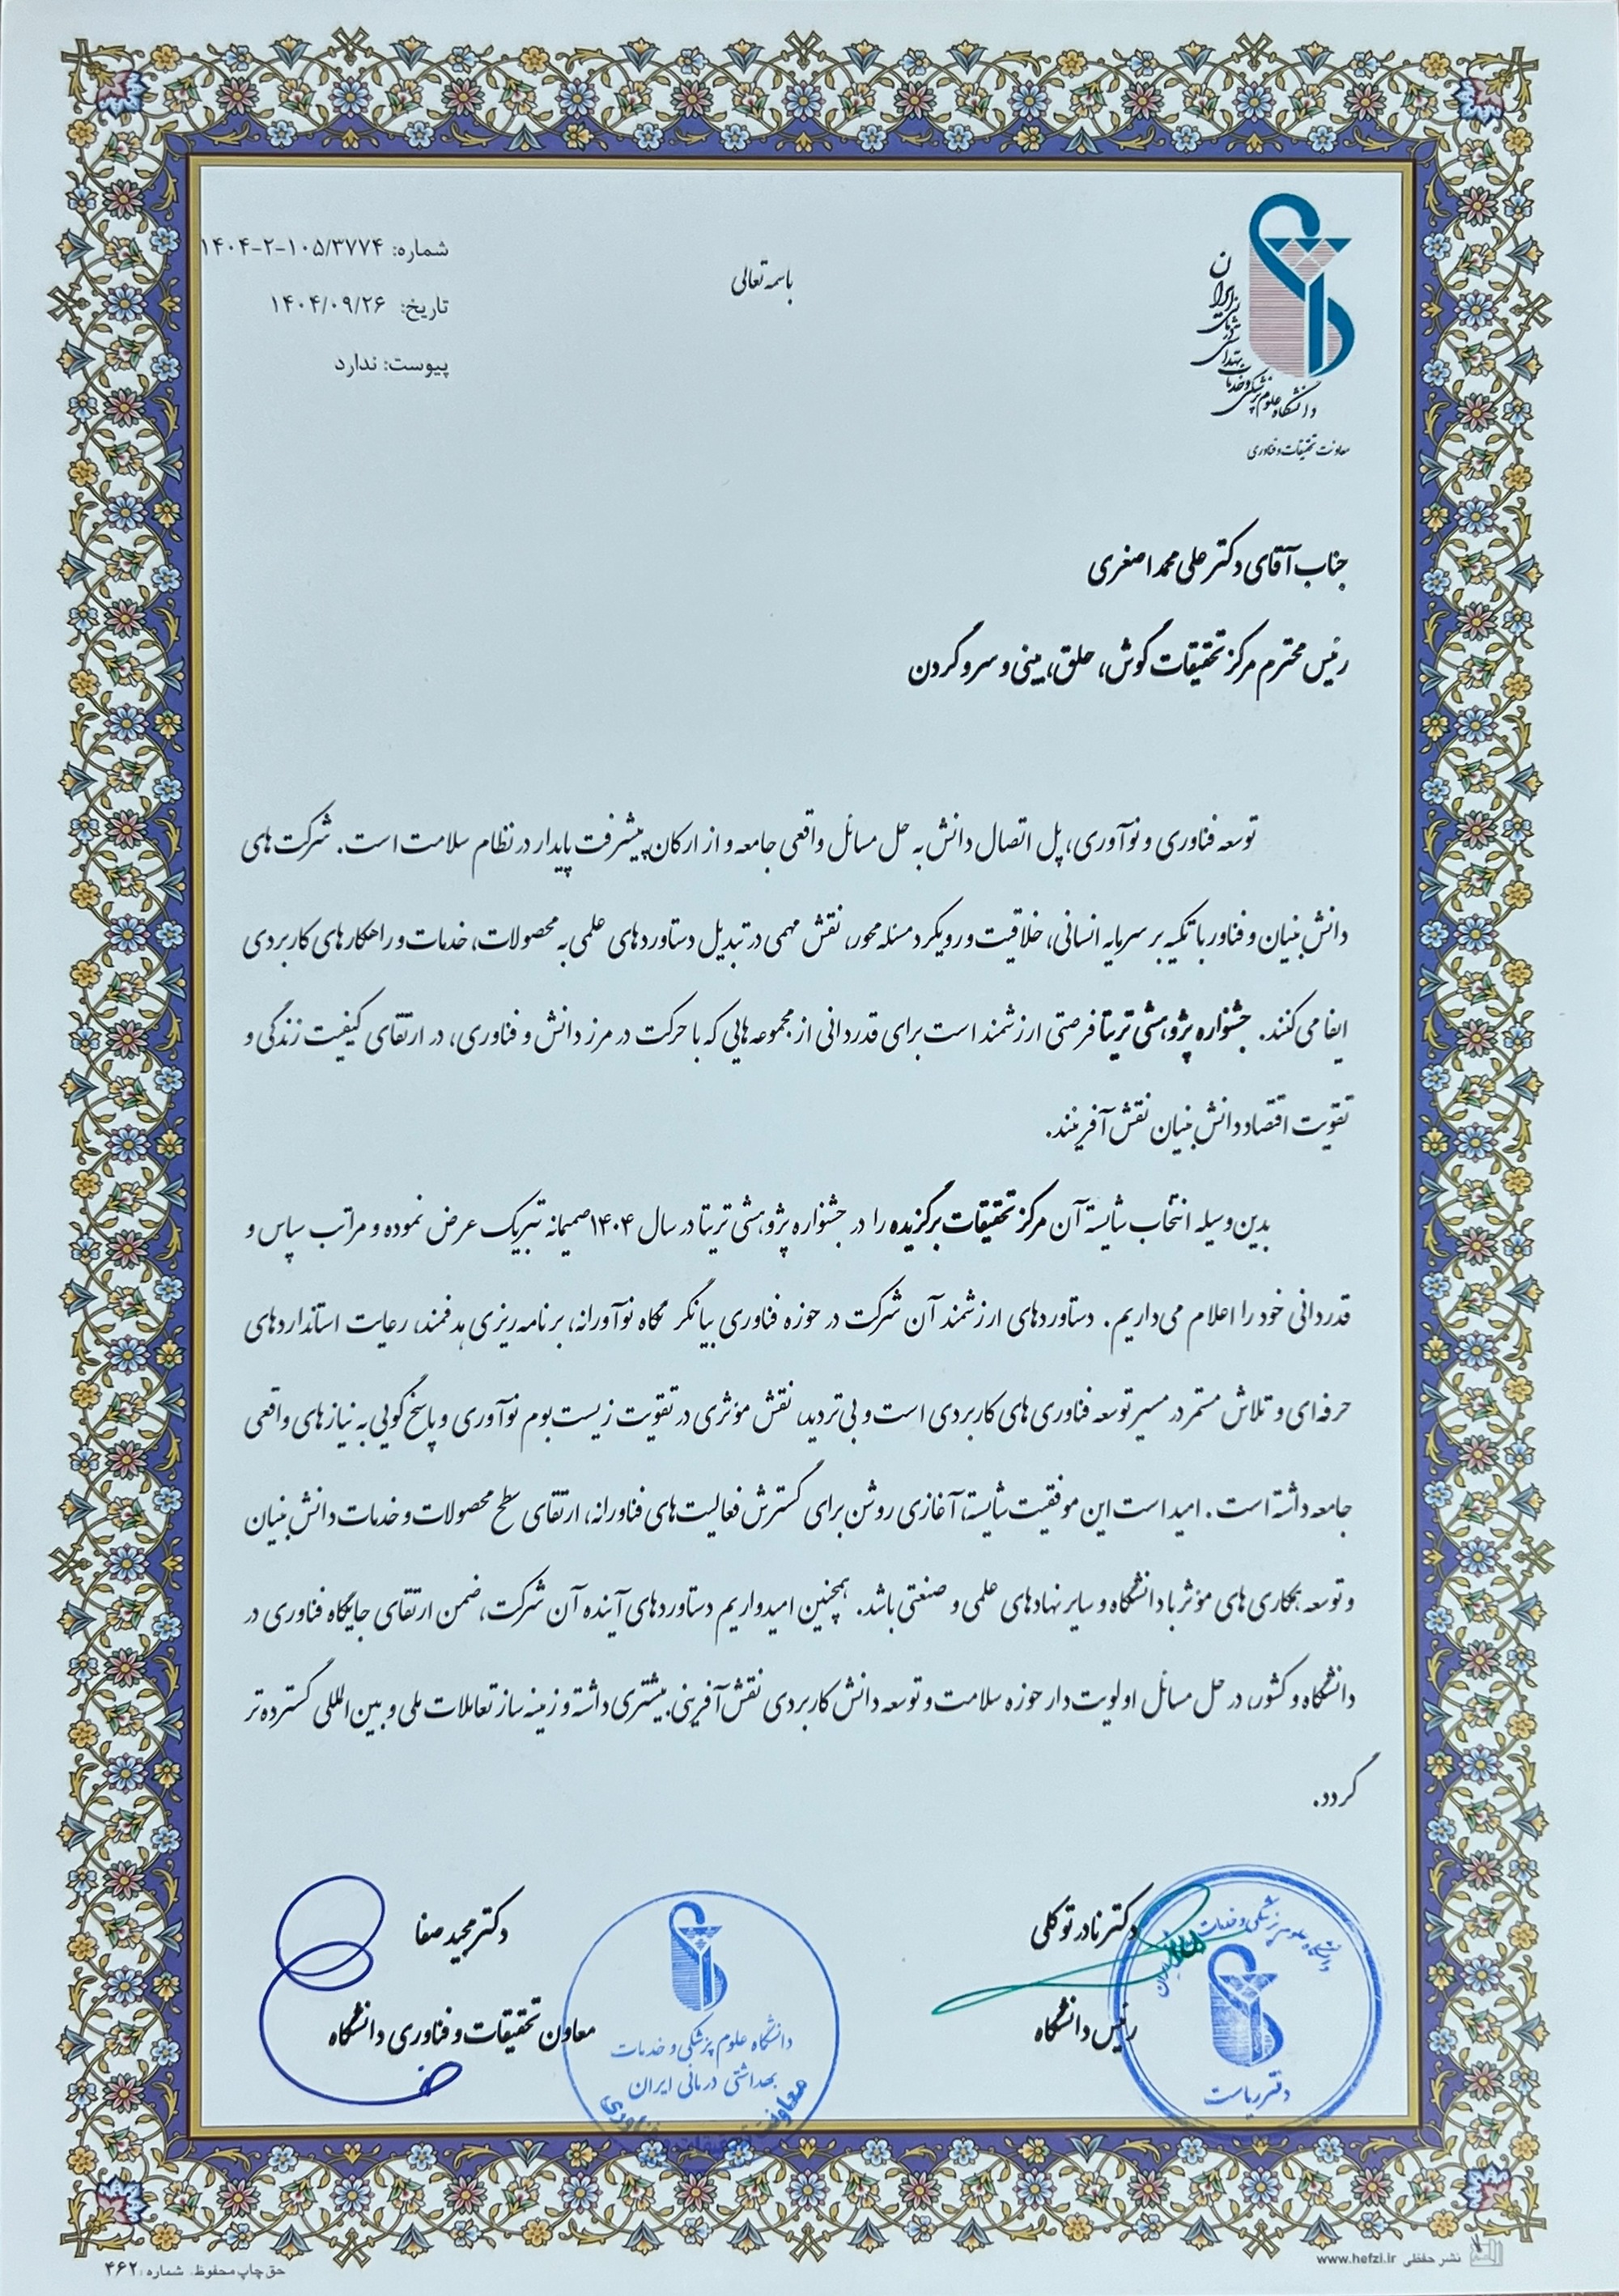 دانشگاه علوم پزشکی و خدمات بهداشتی درمانی ایران
معاونت تحقیقات و فناوری
باسمه تعالی
شماره: ۱۴۰۴-۲-۱۰۵/۳۷۷۴
تاریخ: ۱۴۰۴/۰۹/۲۶
پیوست: ندارد
جناب آقای دکتر علی محمد اصغری
رئیس محترم مرکز تحقیقات گوش، حلق، بینی و سر و گردن
توسعه فناوری و نوآوری، پل اتصال دانش به حل مسائل واقعی جامعه و از ارکان پیشرفت پایدار در نظام سلامت است. شرکت های
دانش بنیان و فناور با تکیه بر سرمایه انسانی، خلاقیت و رویکرد مسئله محور، نقش مهمی در تبدیل دستاوردهای علمی به محصولات، خدمات و راهکارهای کاربردی
ایفا می کنند. جشنواره پژوهشی تریتا فرصتی ارزشمند است برای قدردانی از مجموعه هایی که با حرکت در مرز دانش و فناوری، در ارتقای کیفیت زندگی و
تقویت اقتصاد دانش بنیان نقش آفرینند.
بدین وسیله انتخاب شایسته آن مرکز تحقیقات برگزیده را در جشنواره پژوهشی تریتا در سال ۱۴۰۴ صمیمانه تبریک عرض نموده و مراتب سپاس و
قدردانی خود را اعلام می داریم. دستاوردهای ارزشمند آن شرکت در حوزه فناوری بیانگر نگاه نوآورانه، برنامه ریزی هدفمند، رعایت استانداردهای
حرفه ای و تلاش مستمر در مسیر توسعه فناوری های کاربردی است و بی تردید، نقش مؤثری در تقویت زیست بوم نوآوری و پاسخ گویی به نیازهای واقعی
جامعه داشته است. امید است این موفقیت شایسته، آغازی روشن برای گسترش فعالیت های فناورانه، ارتقای سطح محصولات و خدمات دانش بنیان
و توسعه همکاری های مؤثر با دانشگاه و سایر نهادهای علمی و صنعتی باشد. همچنین امیدواریم دستاوردهای آینده آن شرکت، ضمن ارتقای جایگاه فناوری در
دانشگاه و کشور، در حل مسائل اولویت دار حوزه سلامت و توسعه دانش کاربردی نقش آفرینی بیشتری داشته و زمینه ساز تعاملات ملی و بین المللی گسترده تر
گردد.
دکتر نادر توکلی
رئیس دانشگاه
دانشگاه علوم پزشکی و خدمات
ایران
دفتر ریاست
دکتر مجید صفا
معاون تحقیقات و فناوری دانشگاه
دانشگاه علوم پزشکی و خدمات
بهداشتی درمانی ایران
معاونت تحقیقات و فناوری
نشر حفظی www.hefzi.ir
حق چاپ محفوظ. شماره: ۴۶۲